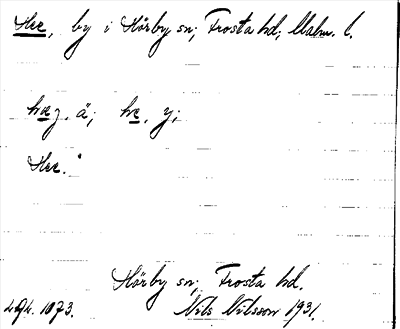 Hee, by i Hörby sn; Frosta hd; Malm. l.
hæ z. ä; he, y;
Hee."
Hörby sn; Frosta hd.
494. 1073. Nils Nilsson 1931.